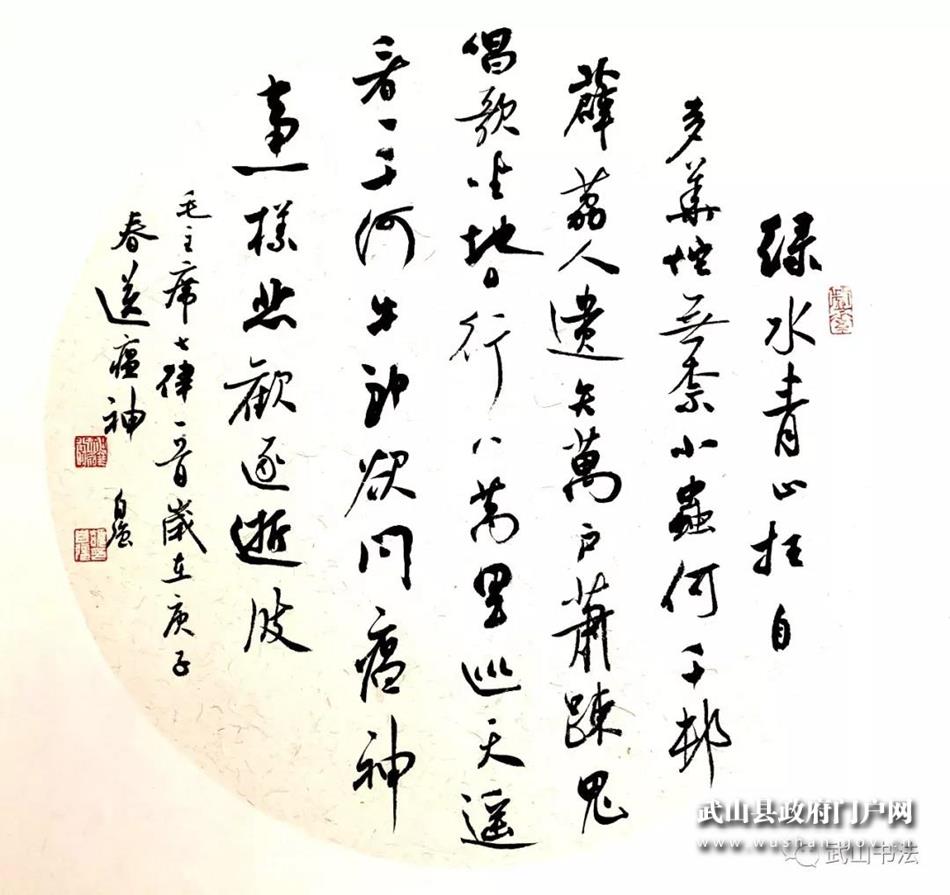 绿水青山枉自
多華佗无柰小蟲何千邨
薜荔人遺矢萬户蕭踈鬼
倡歌坐地日行八萬里巡天遥
看一千河牛郎欲问瘟神
事一樣悲歡逐逝波
毛主席七律一首歲在庚子
春送瘟神
武山县政府门户网
www.wushan.gov.cn
武山书法